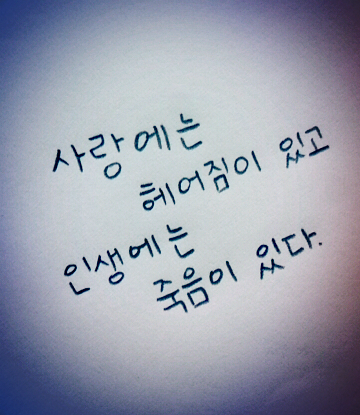 사랑에는
헤어짐이 있고
인생에는
죽음이 있다.